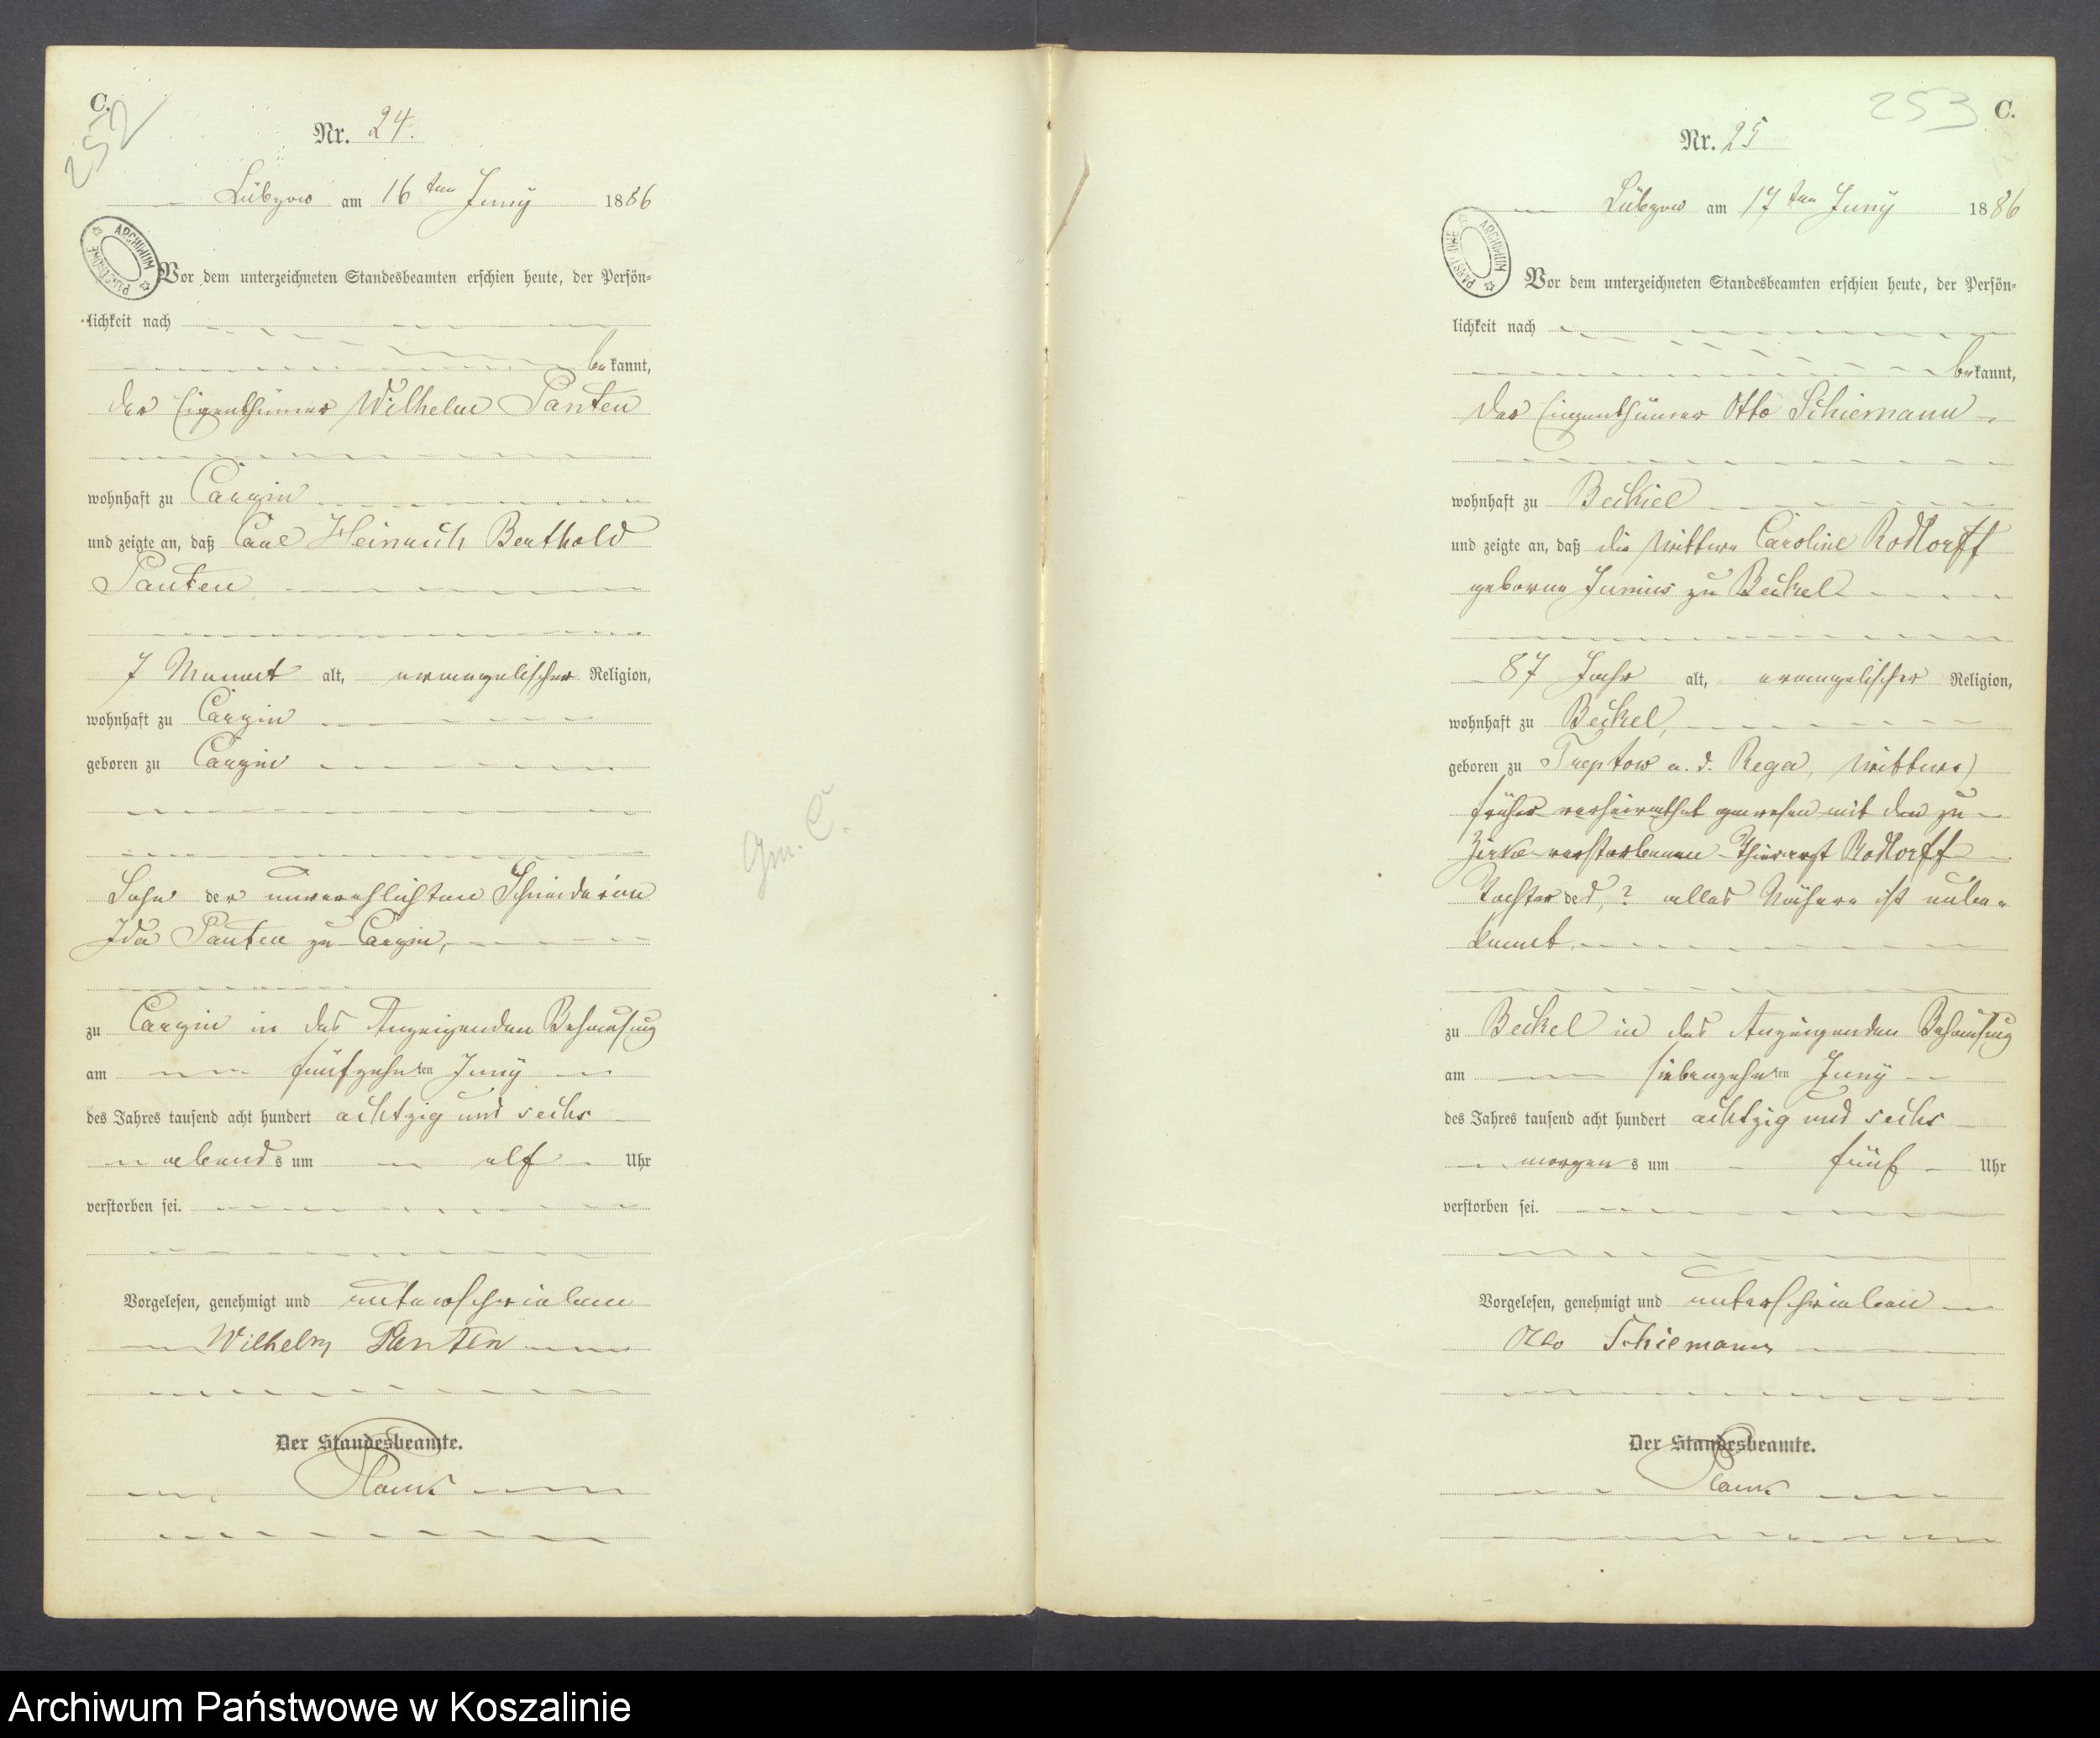 C.
252
Nr. 24.
Lübzow am 16ten Juny 1886
ARCHIWUM PAŃSTWOWE
Vor dem unterzeichneten Standesbeamten erschien heute, der Persön-
lichkeit nach
bekannt,
der Eigenthümer Wilhelm Panten
wohnhaft zu Carzin
und zeigte an, daß Carl Heinrich Berthold
Panten
7 Monat alt, evangelischer Religion,
wohnhaft zu Carzin
geboren zu Carzin
Sohn der unverehlichten Schneiderin
Ida Panten zu Carzin,
zu Carzin in des Anzeigenden Behausung
am fünfzehnten Juny
des Jahres tausend acht hundert achtzig und sechs
abends um elf Uhr
verstorben sei.
Vorgelesen, genehmigt und unterschrieben
Wilhelm Panten
Der Standesbeamte.
Gm. C.
253 C.
Nr. 25
Lübzow am 17ten Juny 1886
ARCHIWUM PAŃSTWOWE
Vor dem unterzeichneten Standesbeamten erschien heute, der Persön-
lichkeit nach
bekannt,
der Eigenthümer Otto Schiemann
wohnhaft zu Beckel
und zeigte an, daß die Wittwe Caroline Rodlorff
geborne Junius zu Beckel
87 Jahr alt, evangelischer Religion,
wohnhaft zu Beckel,
geboren zu Treptow a. d. Rega, Wittwe)
früher verheirathet gewesen mit den zu
Zirke verstorbenen Thierarzt Rodlorff
Tochter des, ? alles Nähere ist unbe-
kannt.
zu Beckel in des Anzeigenden Behausung
am siebenzehnten Juny
des Jahres tausend acht hundert achtzig und sechs
morgens um fünf Uhr
verstorben sei.
Vorgelesen, genehmigt und unterschrieben
Otto Schiemann
Der Standesbeamte.
Archiwum Państwowe w Koszalinie